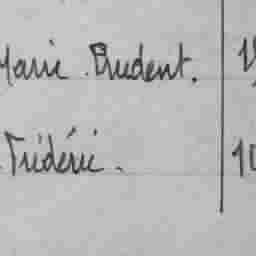 Marie Prudent.
Frédéric.